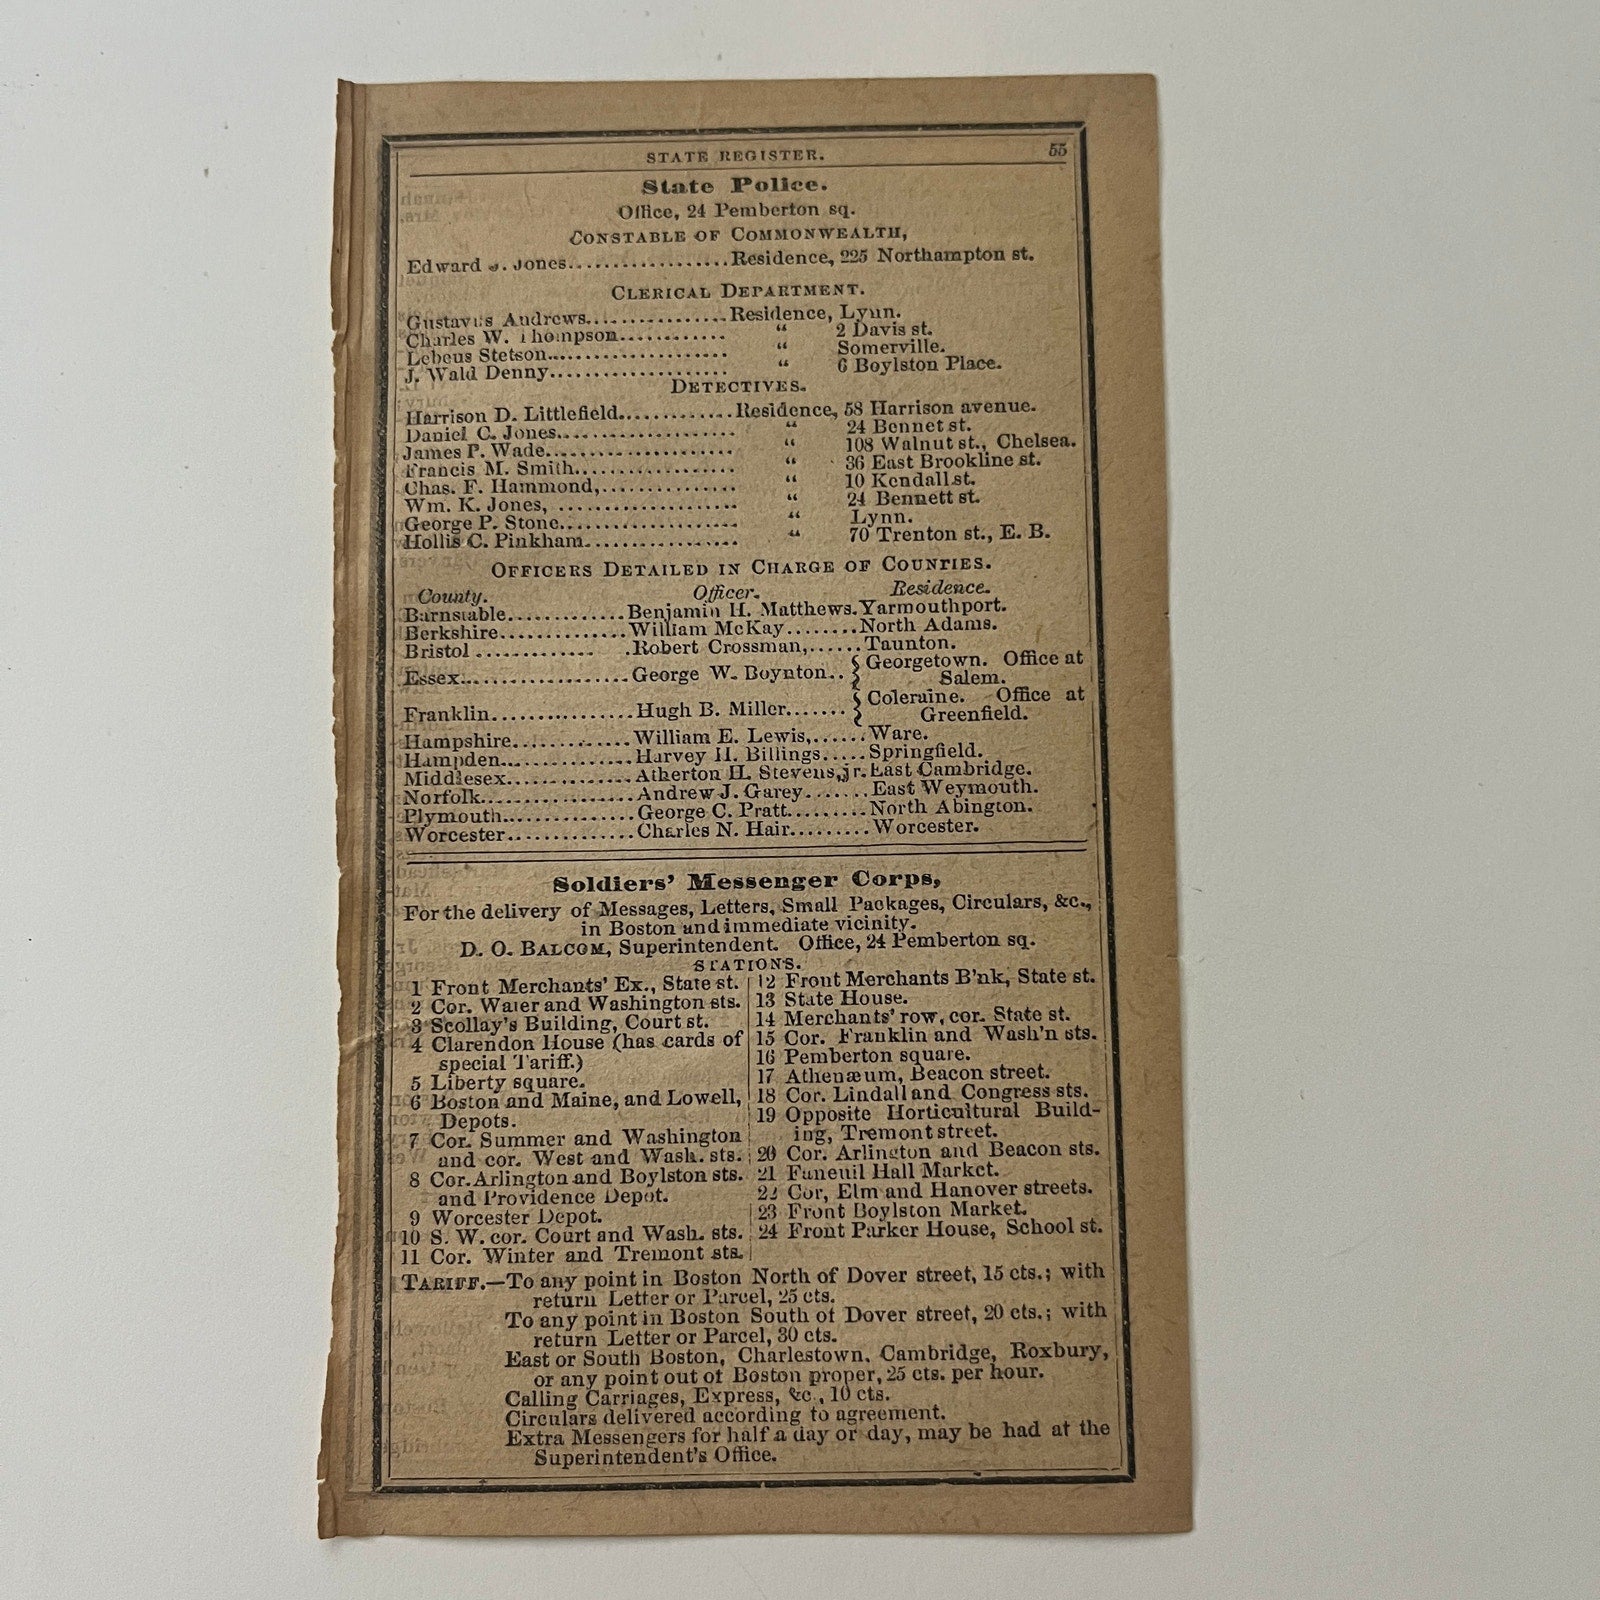 STATE REGISTER. 55
State Police.
Office, 24 Pemberton sq.
CONSTABLE OF COMMONWEALTH,
Edward J. Jones..................Residence, 225 Northampton st.
CLERICAL DEPARTMENT.
Gustavus Andrews................Residence, Lynn.
Charles W. Thompson............ “ 2 Davis st.
Lebeus Stetson.................... “ Somerville.
J. Wald Denny.................... “ 6 Boylston Place.
DETECTIVES.
Harrison D. Littlefield.............Residence, 58 Harrison avenue.
Daniel C. Jones.................... “ 24 Bennet st.
James P. Wade..................... “ 108 Walnut st., Chelsea.
Francis M. Smith.................. “ 36 East Brookline st.
Chas. F. Hammond,............... “ 10 Kendall st.
Wm. K. Jones, .................... “ 24 Bennett st.
George P. Stone................... “ Lynn.
Hollis C. Pinkham................ “ 70 Trenton st., E. B.
OFFICERS DETAILED IN CHARGE OF COUNTIES.
County. Officer. Residence.
Barnstable.............Benjamin H. Matthews.Yarmouthport.
Berkshire..............William McKay........North Adams.
Bristol ............. .Robert Crossman,......Taunton.
Essex..................George W. Boynton.. { Georgetown. Office at
Salem.
Franklin................Hugh B. Miller....... { Coleraine. Office at
Greenfield.
Hampshire.............William E. Lewis,......Ware.
Hampden...............Harvey H. Billings.....Springfield.
Middlesex..............Atherton H. Stevens, jr. East Cambridge.
Norfolk.................Andrew J. Garey.......East Weymouth.
Plymouth...............George C. Pratt.........North Abington.
Worcester..............Charles N. Hair.........Worcester.
Soldiers’ Messenger Corps,
For the delivery of Messages, Letters, Small Packages, Circulars, &c.,
in Boston and immediate vicinity.
D. O. BALCOM, Superintendent. Office, 24 Pemberton sq.
STATIONS.
1 Front Merchants’ Ex., State st.
2 Cor. Water and Washington sts.
3 Scollay’s Building, Court st.
4 Clarendon House (has cards of
special Tariff.)
5 Liberty square.
6 Boston and Maine, and Lowell,
Depots.
7 Cor. Summer and Washington
and cor. West and Wash. sts.
8 Cor. Arlington and Boylston sts.
and Providence Depot.
9 Worcester Depot.
10 S. W. cor. Court and Wash. sts.
11 Cor. Winter and Tremont sts.
12 Front Merchants B’nk, State st.
13 State House.
14 Merchants’ row, cor. State st.
15 Cor. Franklin and Wash’n sts.
16 Pemberton square.
17 Athenæum, Beacon street.
18 Cor. Lindall and Congress sts.
19 Opposite Horticultural Build-
ing, Tremont street.
20 Cor. Arlington and Beacon sts.
21 Faneuil Hall Market.
22 Cor, Elm and Hanover streets.
23 Front Boylston Market.
24 Front Parker House, School st.
TARIFF.—To any point in Boston North of Dover street, 15 cts.; with
return Letter or Parcel, 25 cts.
To any point in Boston South of Dover street, 20 cts.; with
return Letter or Parcel, 30 cts.
East or South Boston, Charlestown, Cambridge, Roxbury,
or any point out of Boston proper, 25 cts. per hour.
Calling Carriages, Express, &c., 10 cts.
Circulars delivered according to agreement.
Extra Messengers for half a day or day, may be had at the
Superintendent’s Office.